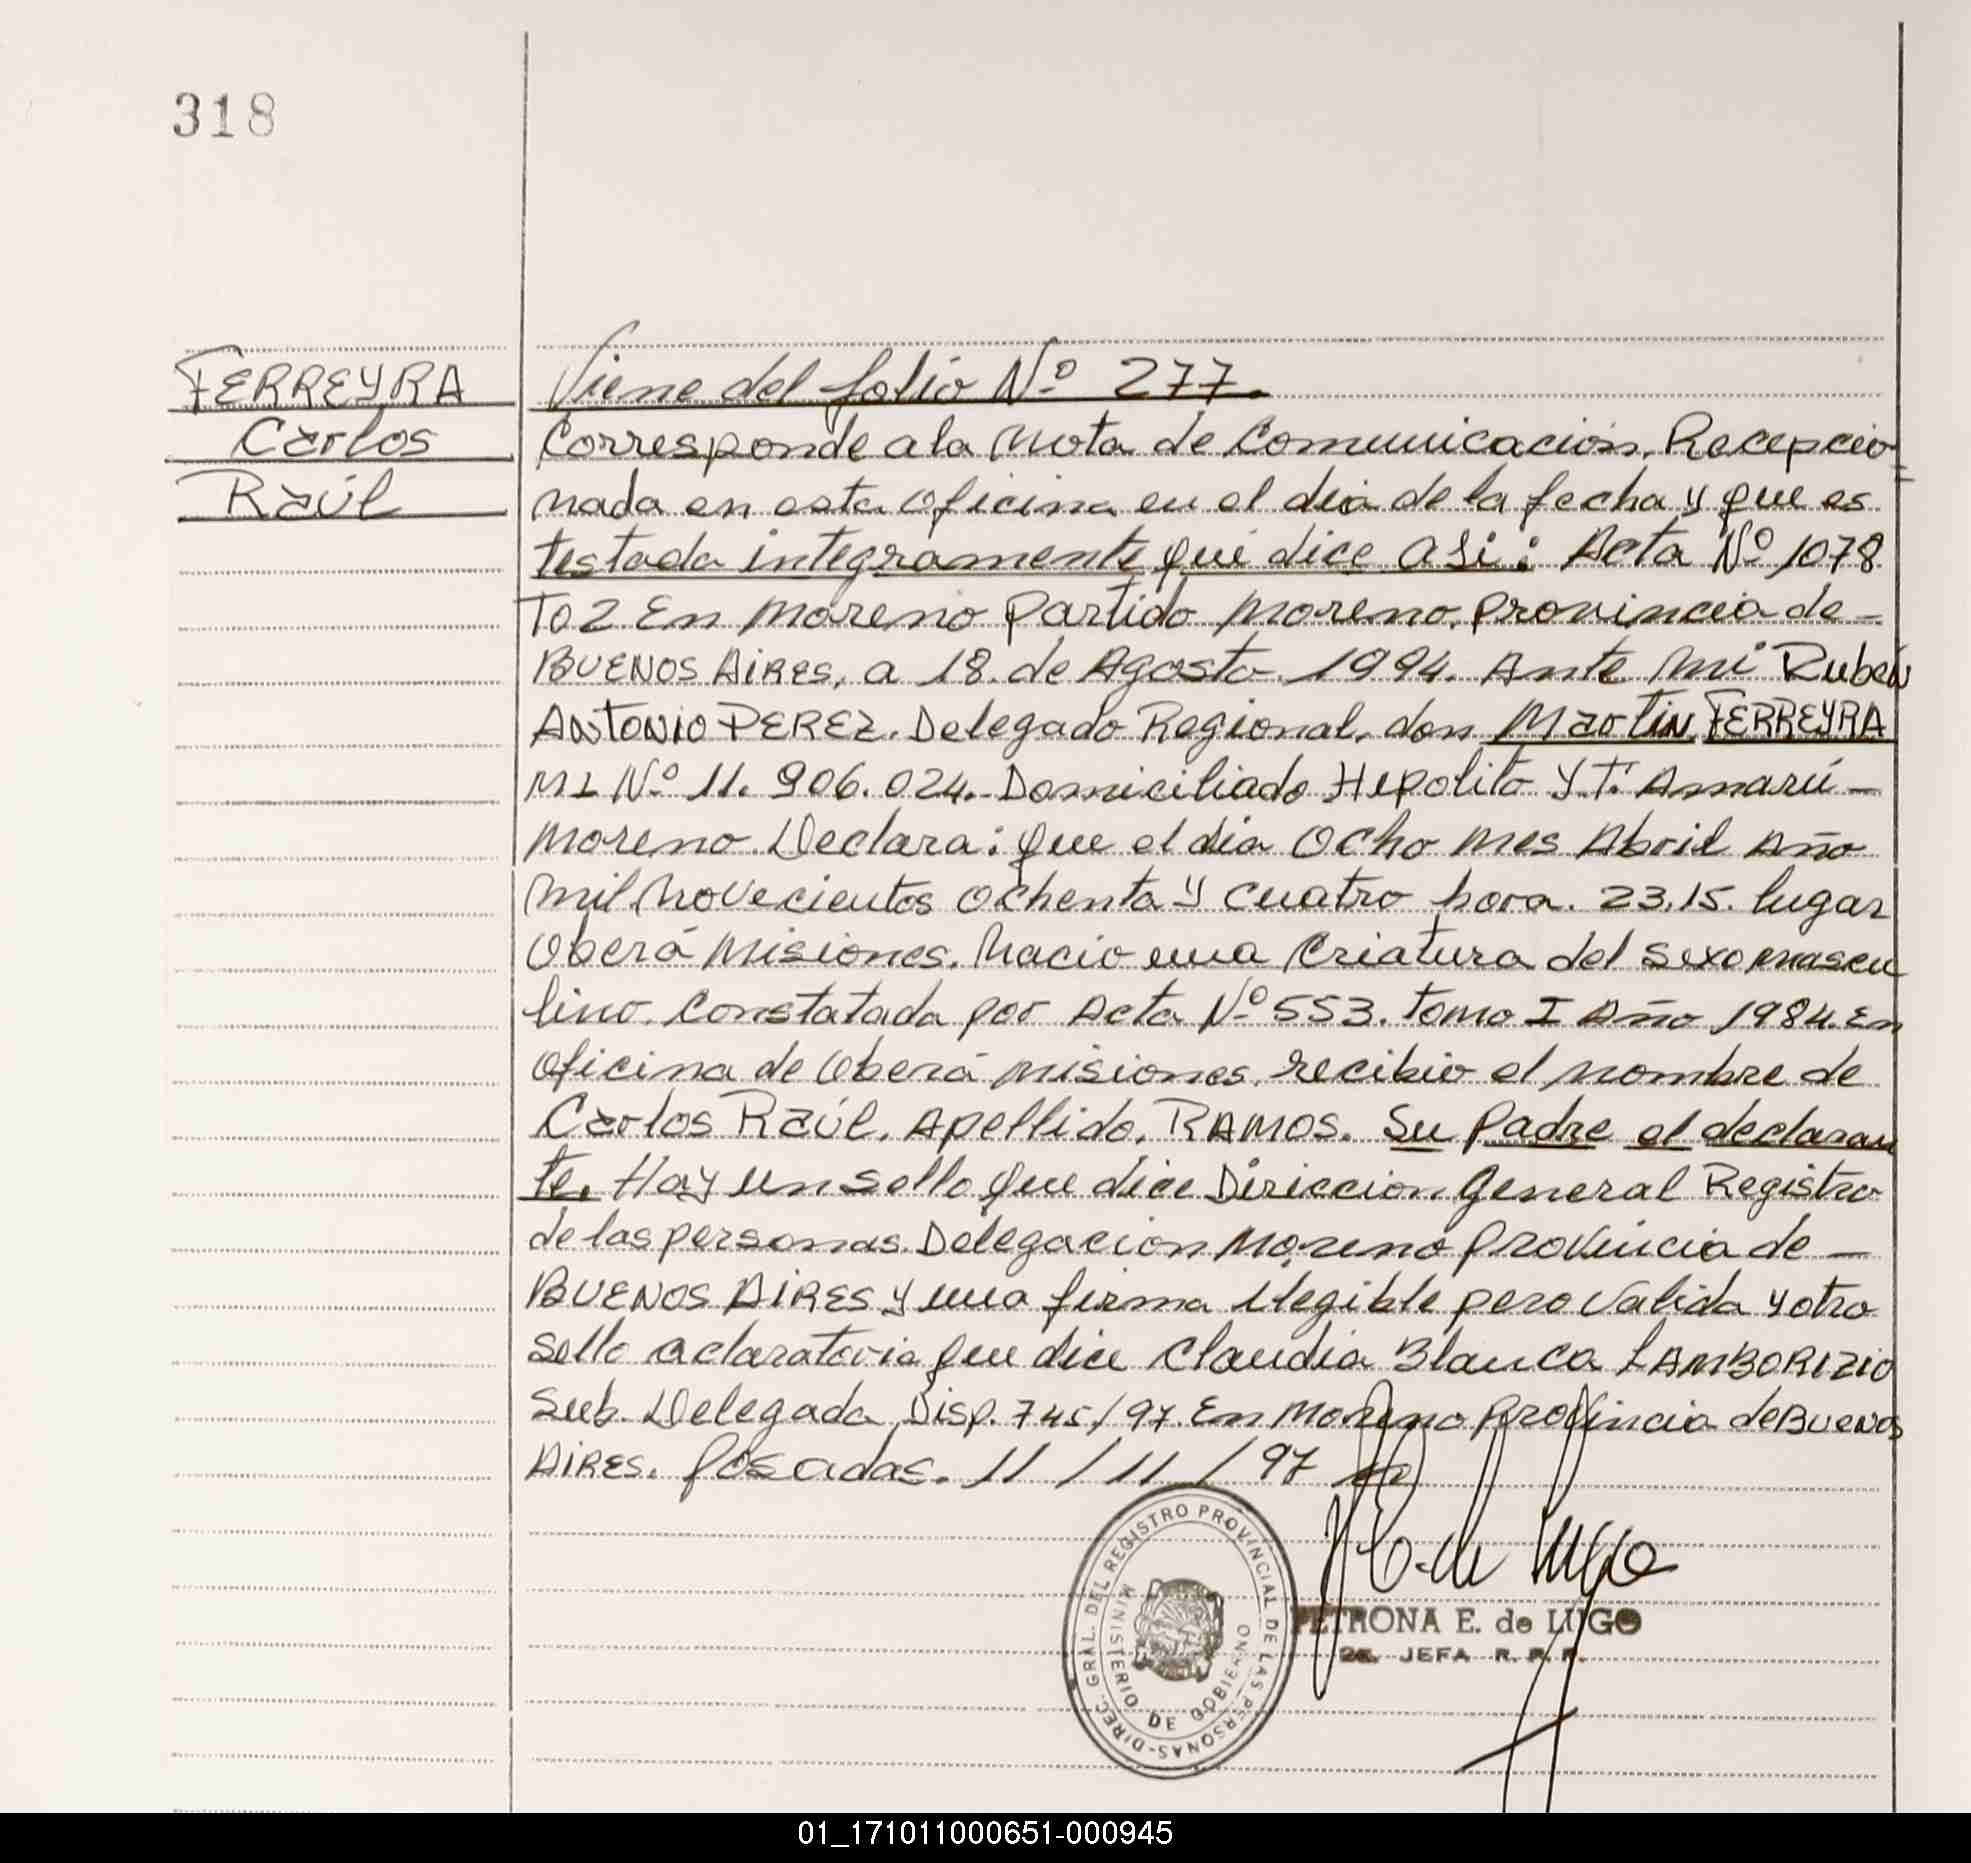 318
FERREYRA
Carlos
Raúl
Viene del folio Nº 277.
Corresponde a la Nota de Comunicación. Recepcio-
nada en esta oficina en el día de la fecha y que es
testada integramente que dice así: Acta Nº 1078
To 2 En Moreno Partido Moreno. Provincia de-
BUENOS AIRES, a 18. de Agosto. 1994. Ante mi Rubén
ANTONIO PEREZ. Delegado Regional. don Martin FERREYRA
MI Nº 11.906.024.- Domiciliado Hepolito Y.T. Amarú-
Moreno. Declara: que el día Ocho mes Abril Año
mil Novecientos Ochenta y cuatro hora. 23.15. lugar
Oberá Misiones. Nacio una Criatura del sexo mascu
lino. Constatada por Acta Nº 553. tomo I Año 1984. En
Oficina de Oberá misiones. recibio el nombre de
Carlos Raúl. Apellido. RAMOS. Su Padre el declaran
te. Hay un sello que dice Diriccion General Registro
de las personas. Delegacion Moreno provincia de-
BUENOS AIRES y una firma ilegible pero valida y otro
sello aclaratorio que dice Claudia Blanca LAMBORIZIO
Sub. Delegada Disp. 745/97. En Moreno Provincia de BUENOS
AIRES. Posadas. 11/11/97
DIREC. GRAL. DEL REGISTRO PROVINCIAL DE LAS PERSONAS-
MINISTERIO DE GOBIERNO
PETRONA E. de LUGO
JEFA R. P. P.
01_171011000651-000945